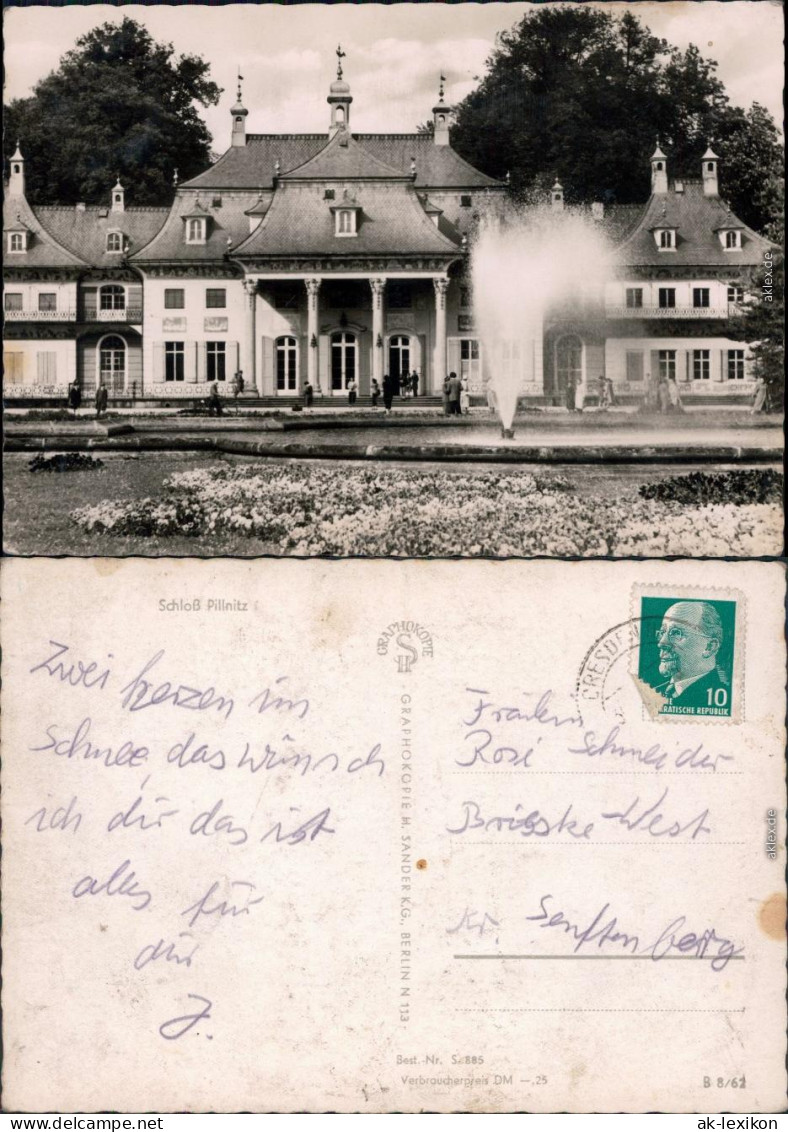 aklex.de
Schloß Pillnitz
Zwei herzen im
Schnee, das wünsch
ich dir das ist
alles für
dir
J.
GRAPHOKOPIE
GRAPHOKOPIE H. SANDER K.G., BERLIN N 113
DRESDEN
10
RATISCHE REPUBLIK
Fräulein
Rosi Schneider
Brieske-West
Kr. Senftenberg
aklex.de
Best.-Nr. S. 885
Verbraucherpreis DM —,25
B 8/62
ak-lexikon